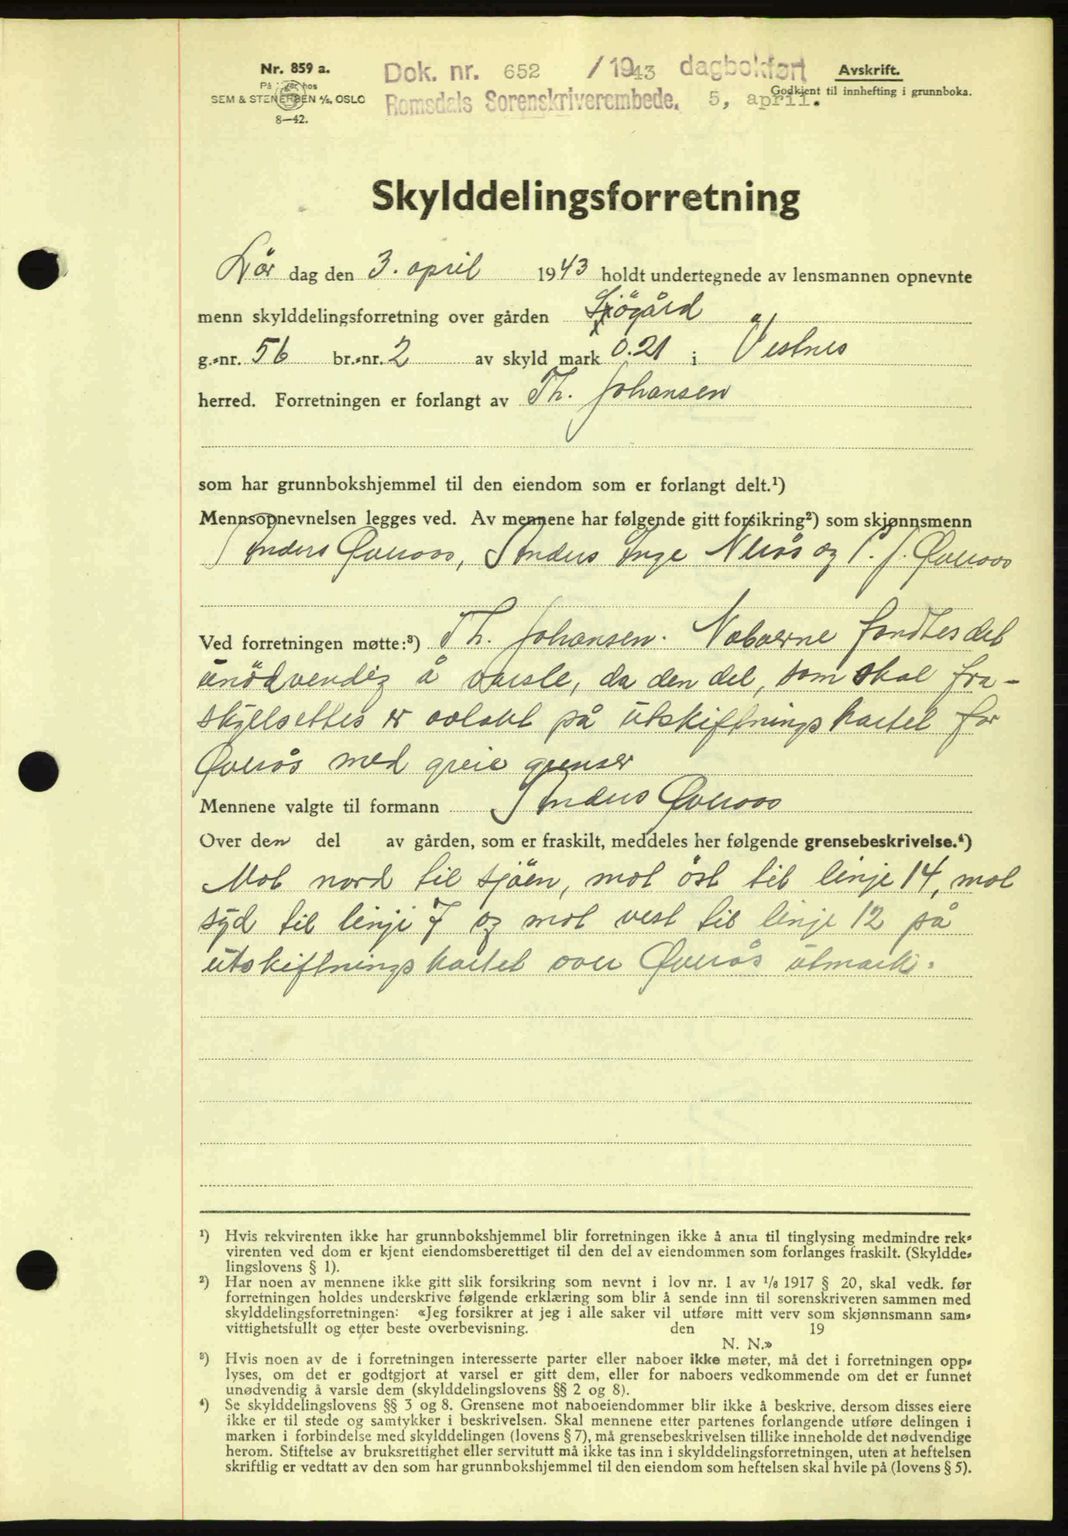 Nr. 859 a.
På lager hos
SEM & STENERSEN A/S, OSLO
8—42.
Dok. nr. 652 /1943 dagbokført
Romsdals Sorenskriverembede. 5, april.
Avskrift.
Godkjent til innhefting i grunnboka.
Skylddelingsforretning
Lör dag den 3. april 1943 holdt undertegnede av lensmannen opnevnte
menn skylddelingsforretning over gården Sjögård
g.-nr. 56 br.-nr. 2 av skyld mark 0.21 i Vestnes
herred. Forretningen er forlangt av Th. Johansen
som har grunnbokshjemmel til den eiendom som er forlangt delt.¹)
Mennsopnevnelsen legges ved. Av mennene har følgende gitt forsikring²) som skjønnsmenn
Anders Øveraas, Anders Inge Nerås og P. J. Øveraas
Ved forretningen møtte:³) Th. Johansen. Naboerne fandtes det
unödvendig å varsle, da den del, som skal fra-
skyllsettes er avlatt på utskiftningskartet for
Øverås med greie grenser
Mennene valgte til formann Anders Øveraas
Over den del av gården, som er fraskilt, meddeles her følgende grensebeskrivelse.⁴)
Mot nord til sjöen, mot öst til linje 14, mot
syd til linje 7 og mot vest til linje 12 på
utskiftningskartet over Øverås utmark.
¹) Hvis rekvirenten ikke har grunnbokshjemmel blir forretningen ikke å anta til tinglysing medmindre rek-
virenten ved dom er kjent eiendomsberettiget til den del av eiendommen som forlanges fraskilt. (Skyldde-
lingslovens § 1).
²) Har noen av mennene ikke gitt slik forsikring som nevnt i lov nr. 1 av 1/8 1917 § 20, skal vedk. før
forretningen holdes underskrive følgende erklæring som blir å sende inn til sorenskriveren sammen med
skylddelingsforretningen: «Jeg forsikrer at jeg i alle saker vil utføre mitt verv som skjønnsmann sam-
vittighetsfullt og etter beste overbevisning. den 19
N. N.»
³) Hvis noen av de i forretningen interesserte parter eller naboer ikke møter, må det i forretningen opp-
lyses, om det er godtgjort at varsel er gitt dem, eller for naboers vedkommende om det er funnet
unødvendig å varsle dem (skylddelingslovens §§ 2 og 8).
⁴) Se skylddelingslovens §§ 3 og 8. Grensene mot naboeiendommer blir ikke å beskrive, dersom disses eiere
ikke er til stede og samtykker i beskrivelsen. Skal mennene etter partenes forlangende utføre delingen i
marken i forbindelse med skylddelingen (lovens § 7), må grensebeskrivelsen tillike inneholde det nødvendige
herom. Stiftelse av bruksrettighet eller servitutt må ikke tas inn i skylddelingsforretningen, uten at heftelsen
skriftlig er vedtatt av den som har grunnbokshjemmel til den eiendom som heftelsen skal hvile på (lovens § 5).